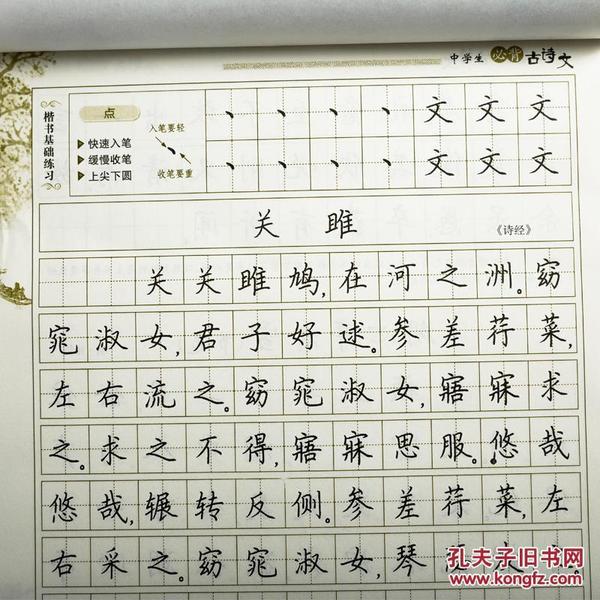 中学生 必背 古诗文
楷书基础练习
点
快速入笔
缓慢收笔
上尖下圆
入笔要轻
收笔要重
丶 丶 丶 丶 文 文 文
丶 丶 丶 丶 文 文 文
关雎
《诗经》
关关雎鸠,在河之洲。窈
窕淑女,君子好逑。参差荇菜,
左右流之。窈窕淑女,寤寐求
之。求之不得,寤寐思服。悠哉
悠哉,辗转反侧。参差荇菜,左
右采之。窈窕淑女,琴
孔夫子旧书网
www.kongfz.com